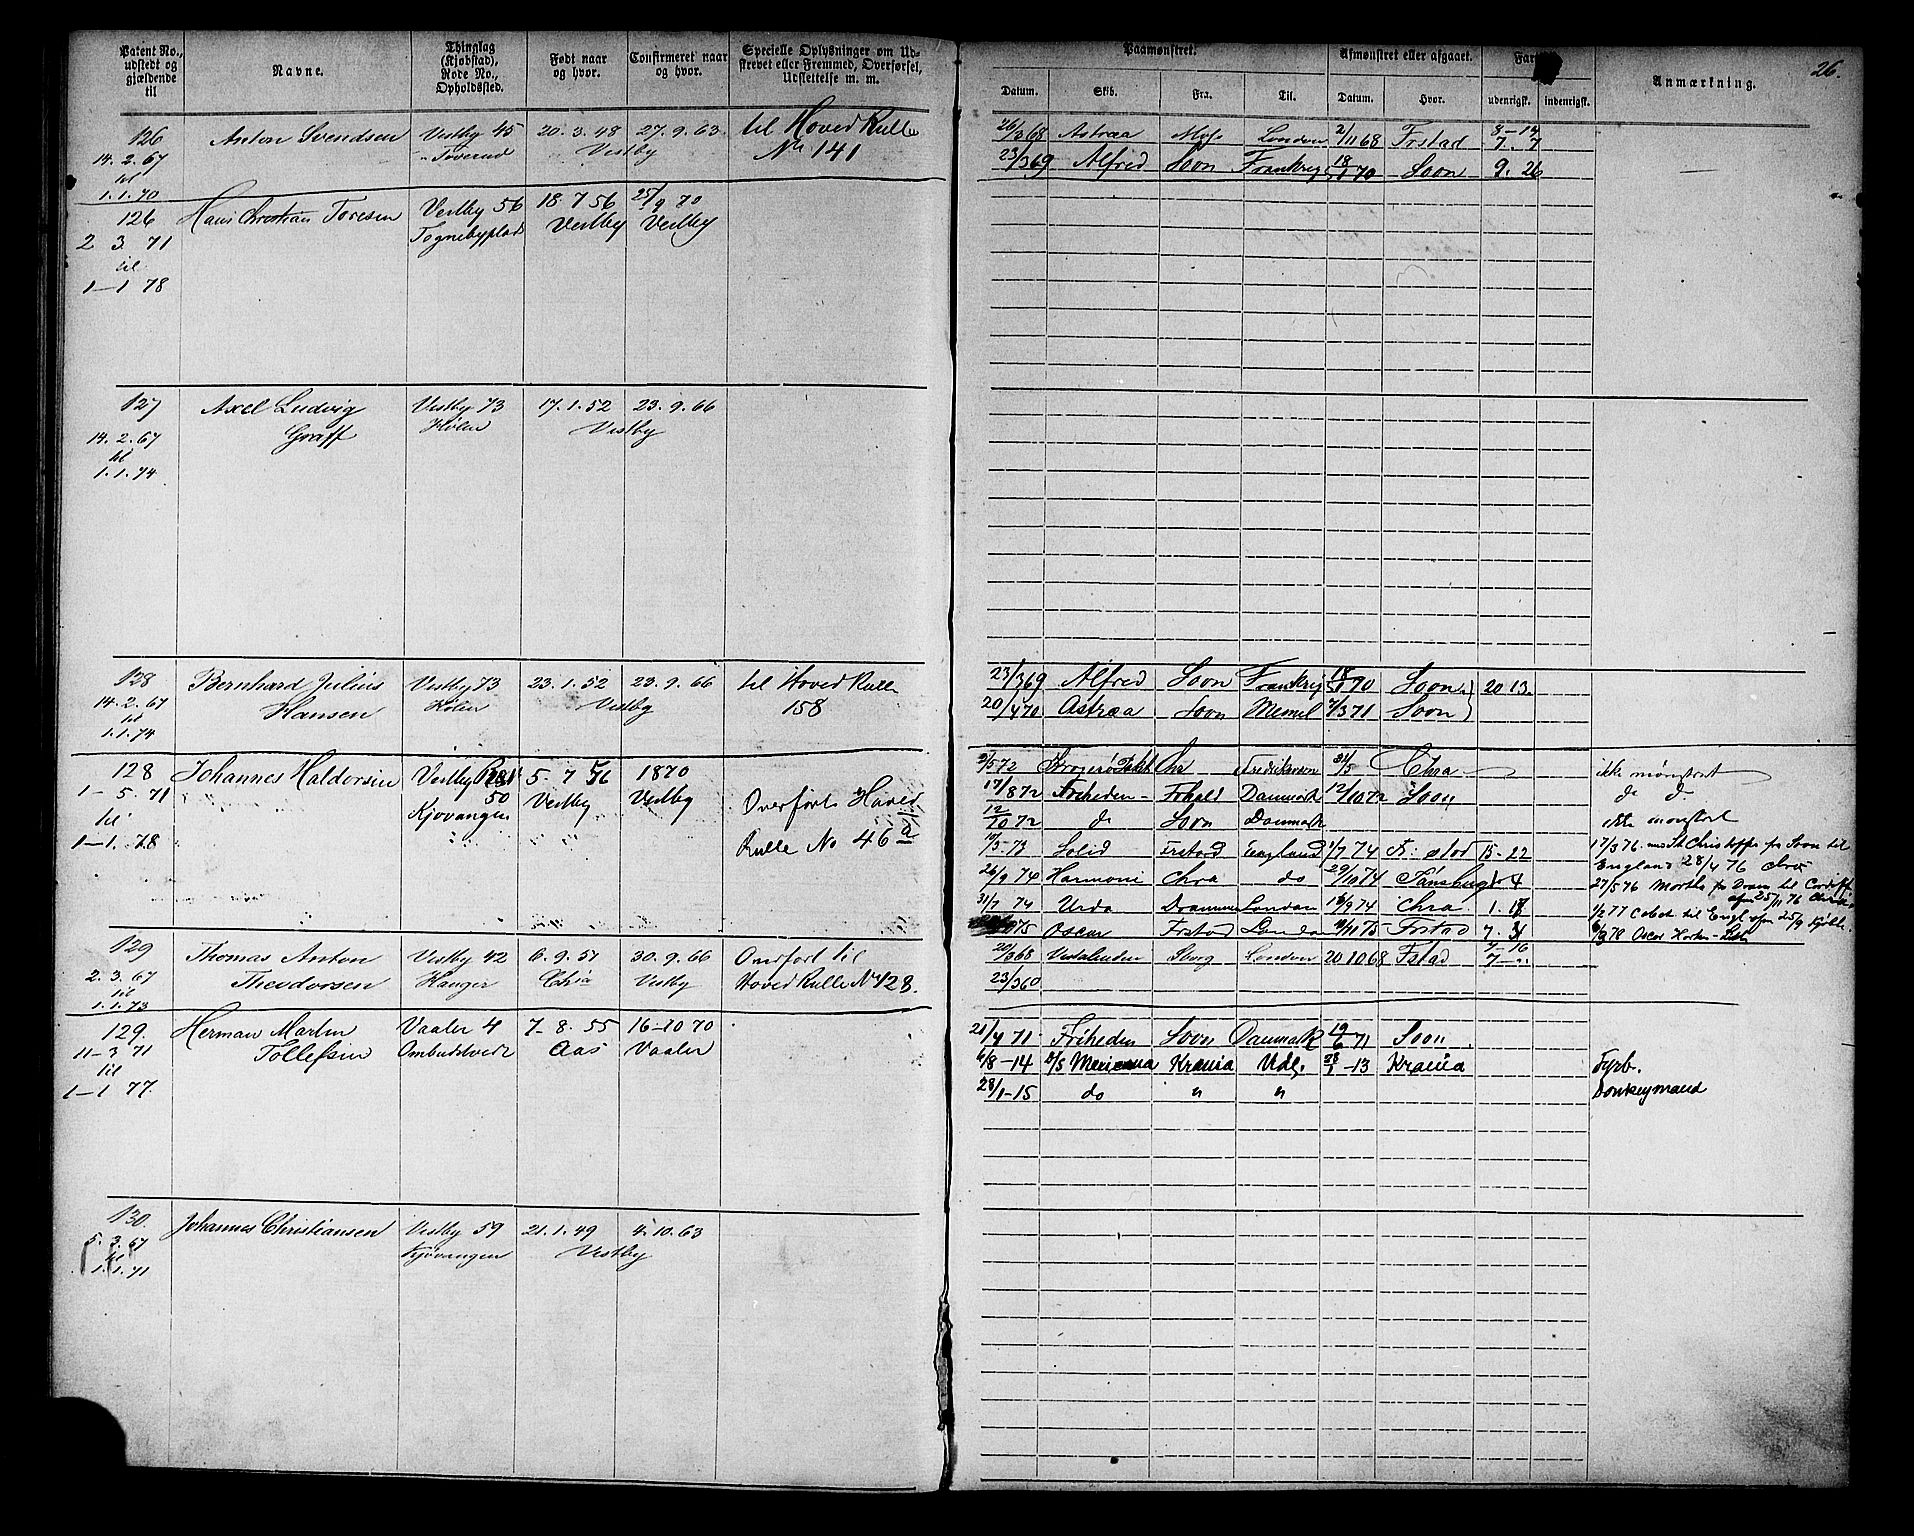 Patent No., udstedt og gjældende til | Navne. | Thinglag (Kjøbstad), Rode No., Opholdssted. | Født naar og hvor. | Confirmeret naar og hvor. | Specielle Oplysninger om Udstrevet eller Fremmed, Overførsel, Udslettelse m. m.
Paamønstret. | Afmønstret eller afgaaet. | Fart | Anmærkning. | 26.
Datum. | Skib. | Fra. | Til. | Datum. | Hvor. | udenrigsk. | indenrigsk.
126 | Anton Svendsen | Vestby 45 | 20. 3. 48 | 27. 9. 63 | til Hoved Rulle
14. 2. 67 | Toverud | Vestby | No 141
til
1. 1. 70
26/3 68 | Astræa | Moss | London | 2/11 68 | Frstad | 8-14
23/3 69 | Alfred | Soon | Frankrig | 18/1 70 | Soon | 9. 26
126 | Hans Christian Toresen | Vestby 56 | 18 7 56 | 25/9 70
2 3. 71 | Tognebyplads | Vestby | Vestby
til
1-1 78
127 | Axel Ludvig | Vestby 73 | 17. 1. 52 | 23. 9. 66
14. 2. 67 | Graff | Hølen | Vestby
til
1. 1. 74
128 | Bernhard Julius | Vestby 73 | 23. 1. 52 | 23. 9. 66 | til Hoved Rulle
14. 2. 67 | Hansen | Hølen | Vestby | 158
til
1. 1. 74
23/3 69 | Alfred | Soon | Frankrig | 18/1 70 | Soon | 20 13.
20/4 70 | Astræa | Soon | Memel | 7/3 71 | Soon
128 | Johannes Haldorsen | Vestby | 5. 7 56 | 1870
1-5. 71 | 50 | Vestby | Vestby | Overført Hoved
til | Kjøvangen | Rulle No 46
1-1. 78
Chra | ikke mønstret
17/8 72 | Friheden | Frhald | Danmark | 12/10 72 | Soon | do do
12/10 72 | do | Soon | Danmark | ikke mønstret
Solid | Frstad | England | 1/7 74 | Fr: stad | 15-22 | 17/3 76 Christoffe fr Soon til
26/9 74 | Harmoni | Chra | do | 29/10 74 | Tønsberg | England 28/4 76 Chra
31/7 74 | Urda | Drammen | London | 18/9 74 | Chra | 1. 17 | 27/5 76 Martha fr Dram til Cardiff
75 | Oscar | Frstad | London | Frstad | 7. 31 | 78 Oscar Horten
129 | Thomas Anton | Vestby 42 | 6. 9. 51 | 30. 9. 66 | Overført til
2. 3. 67 | Theodorsen | Hauger | Chra | Vestby | Hoved Rulle No 128.
til
1. 1. 73
20/3 68 | Sborg | London | 20 10 68 | Fstad | 7-16
129. | Herman Martin | Vaaler 4 | 7-8. 55 | 16-10 70
11-3 71 | Tollefsen | Ombudstvedt | Aas | Vaaler
til
1-1 77.
21/4 71. | Friheden | Soon | Danmark | 19/6 71 | Soon
6/8-14 | S/S Merianna | Krania | Udl. | 28/1-13 | Krania | Fyrb.
28/1-15 | do | " | " | Donkeymand
130. | Johannes Christiansen | Vestby 59 | 21. 1. 49 | 4. 10. 63
5. 3. 67 | Kjøvangen | Vestby
til
1. 1. 71